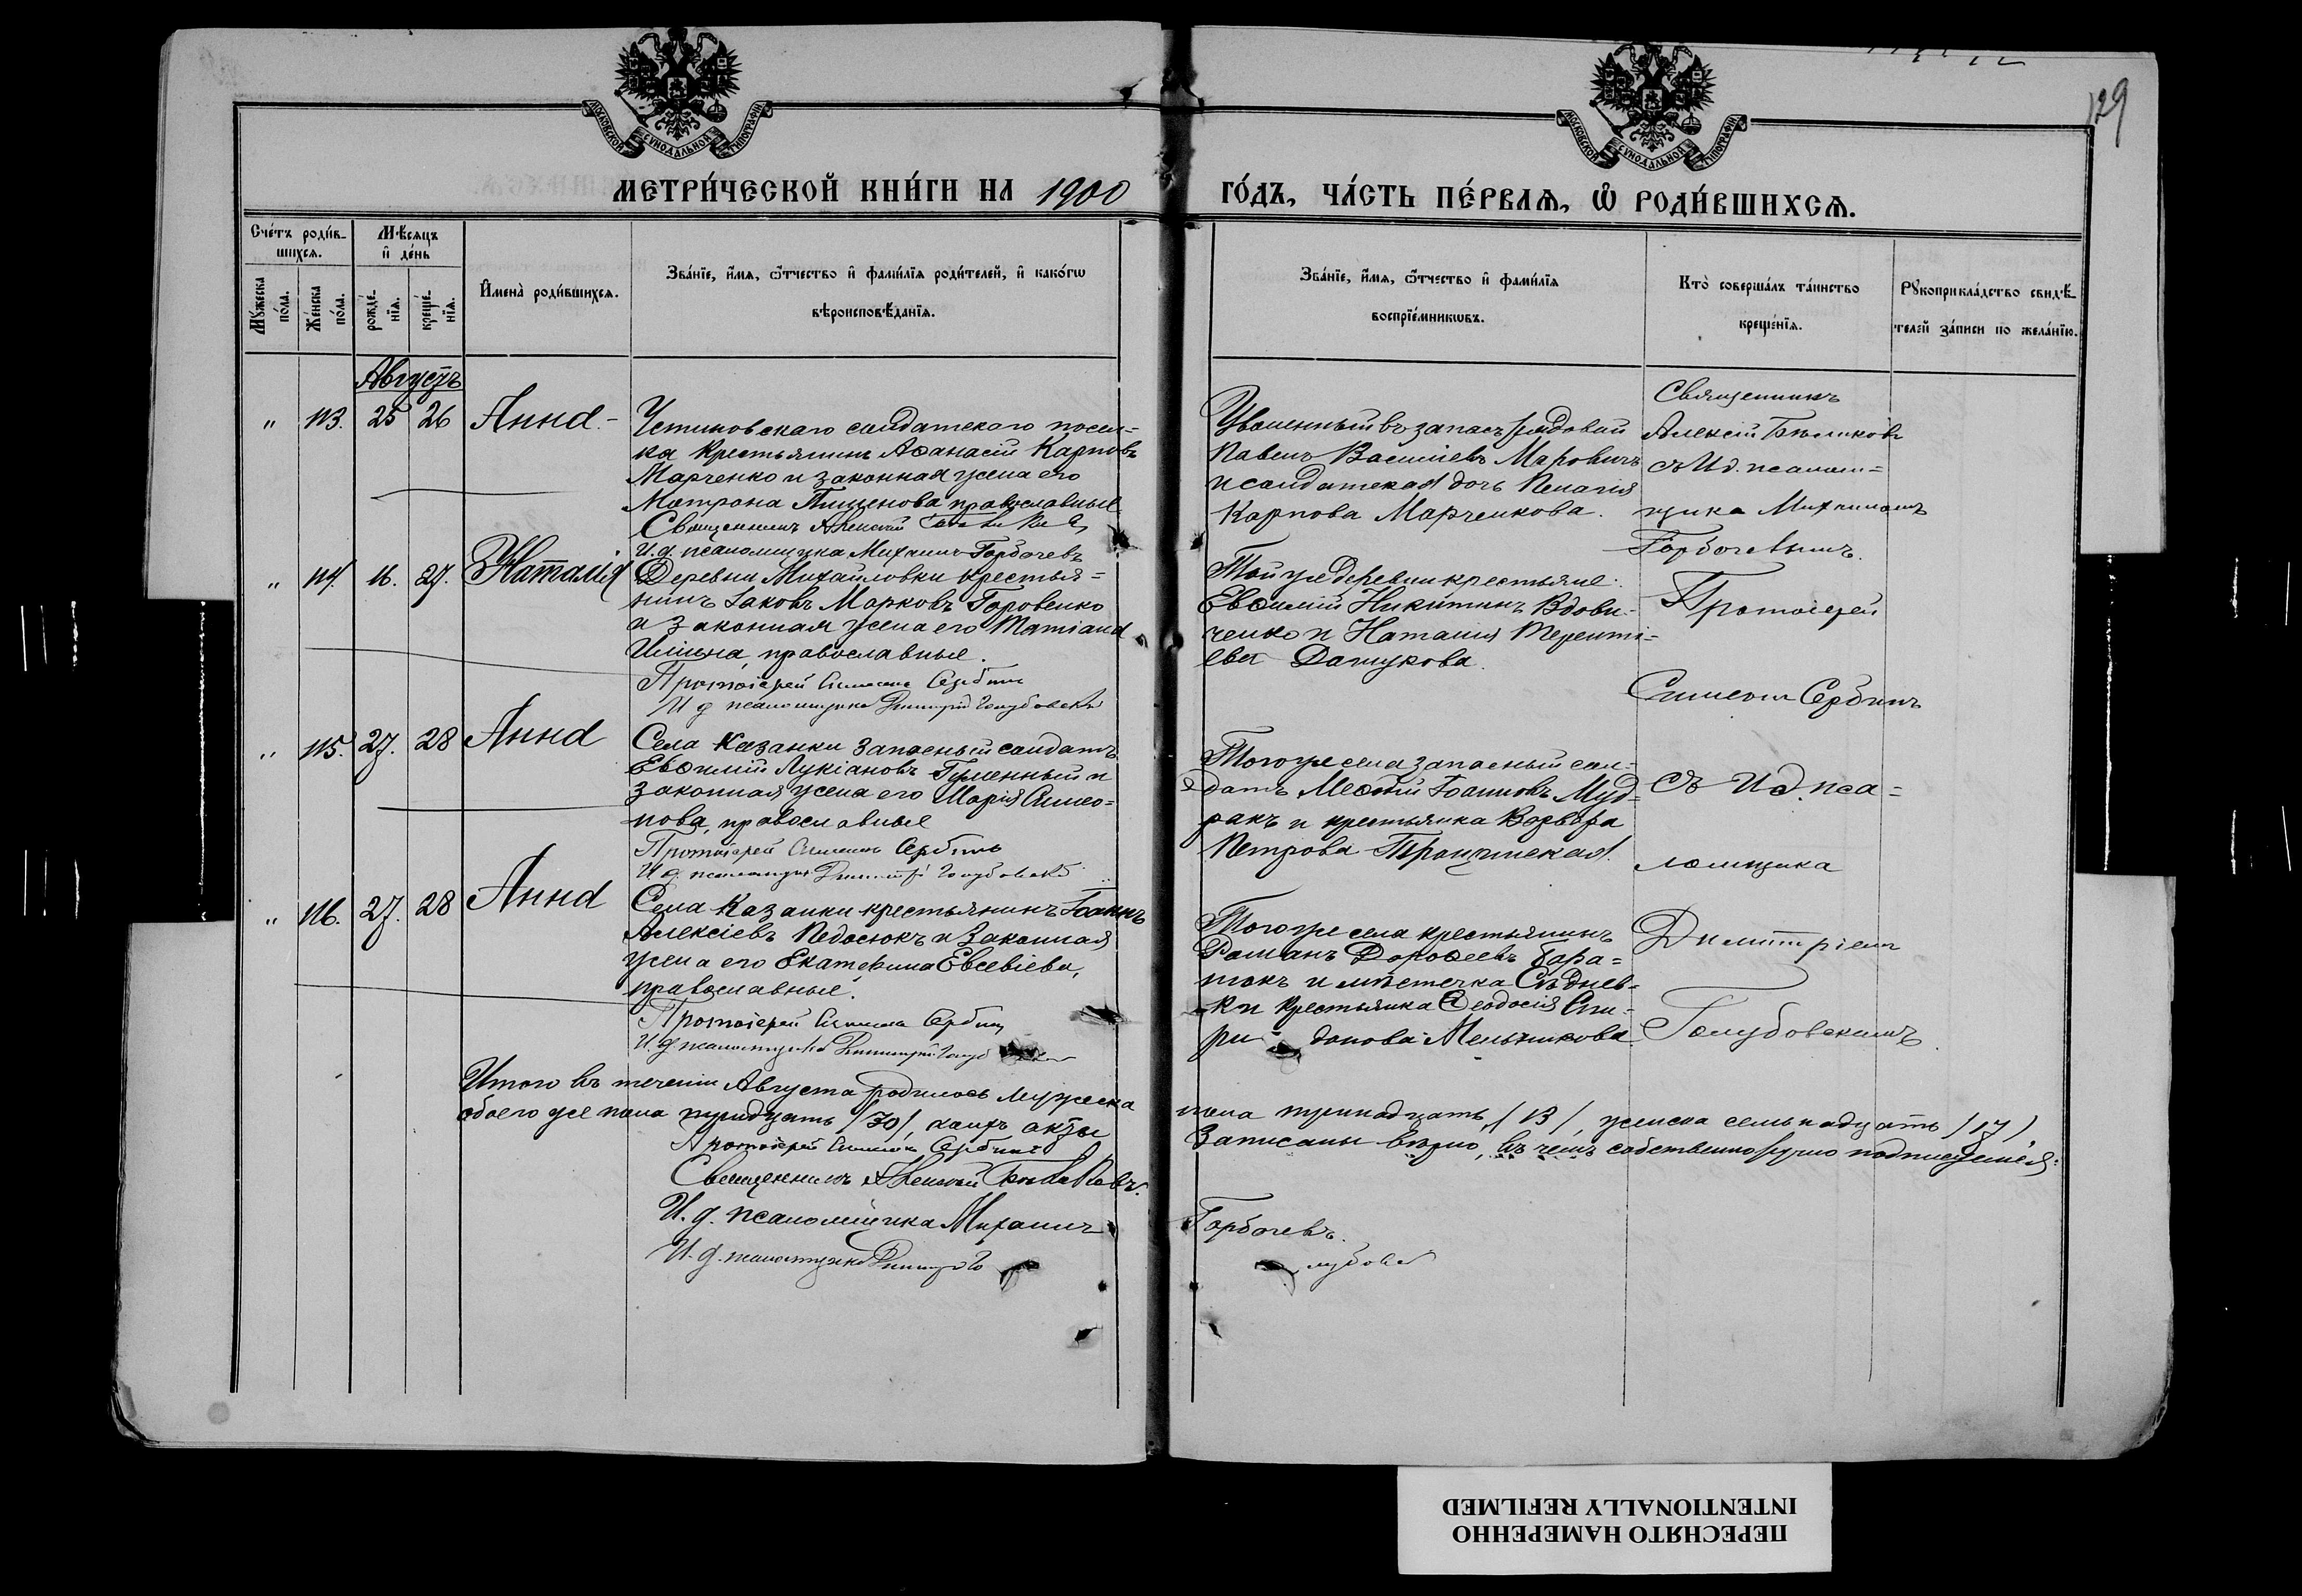 129
МОСКОВСКОЙ СѴНОДАЛЬНОЙ ТИПОГРАФІИ
МОСКОВСКОЙ СѴНОДАЛЬНОЙ ТИПОГРАФІИ
МЕТРИ́ЧЕСКОЙ КНИ́ГИ НА 1900
ГО́ДЪ, ЧА́СТЬ ПЕ́РВАѦ, Ѡ РОДИ́ВШИХСѦ.
Сче́тъ роди́в-
шихся.
Мѣсяцъ
и де́нь
Му́жеска
по́ла.
Же́нска
по́ла.
рожде́-
нїя.
креще́-
нїя.
Имена̀ роди́вшихся.
Зва́нїе, и́мя, ѻ́тчество и фами́лїя роди́телей, и како́гѡ
вѣроисповѣ́данїя.
Зва́нїе, и́мя, ѻ́тчество и фами́лїя
воспрїе́мникѡвъ.
Кто̀ соверша́лъ та́инство
креще́нїя.
Рꙋкоприкла́дство свидѣ́-
телей за́писи по жела́нїю.
Августъ
„ 113. 25 26 Анна
Устиновскаго солдатскаго посел-
ка крестьянинъ Аѳанасій Карповъ
Марченко и законная жена его
Матрона православные
Священникъ Алексій
И. д. псаломщика Михаилъ Горбачевъ
Уволенный въ запасъ рядовой
Павелъ Василіевъ Маровичъ
и солдатская дочь Пелагія
Карпова Марченкова.
Священникъ
Алексій Бѣликовъ
съ И.д. псалом-
щика Михаиломъ
Горбачевымъ.
„ 114. 16. 27. Наталія
Деревни Михайловки крестья-
нинъ Іаковъ Марковъ Горовенко
и законная жена его Татіана
Ильина, православные.
Протоіерей Симеонъ Сербинъ
И д псаломщика Димитрій Голубовскій
Той же деревни крестьяне:
Евѳимій Никитинъ Вдови-
ченко и Наталія Теренті-
ева Дашукова.
Протоіерей
Симеонъ Сербинъ
„ 115. 27. 28 Анна
Села Казанки запасный солдатъ
Евѳимій Лукіановъ Гуменный и
законная жена его Марія Симео-
нова, православные
Протоіерей Симеонъ Сербинъ
И. д. псаломщика Димитрій Голубовскій
Того же села запасный сол-
датъ Меѳодій Іоанновъ Муд-
ракъ и крестьянка Варвара
Петрова
съ И.д. пса-
ломщика
„ 116. 27. 28 Анна
Села Казанки крестьянинъ Іоаннъ
Алексіевъ Недосюкъ и законная
жена его Екатерина Евсевіева,
православные.
Протоіерей Симеонъ Сербинъ
И. д. псаломщика Димитрій
Того же села крестьянинъ
Романъ Дороѳеевъ Бара-
нокъ и мѣстечка Сѣднев-
ки крестьянка Ѳеодосія Спи-
ри- донова Мельникова
Димитріемъ
Голубовскимъ.
Итого въ теченіи Августа родилось мужеска
пола тринадцать /13/, женска семьнадцать /17/,
обоего же пола тридцать /30/, коихъ акты
записаны вѣрно, въ чемъ собственноручно подписуемся:
Протоіерей Симеонъ Сербинъ
Священникъ Алексій Бѣликовъ.
И. д. псаломщика Михаилъ Горбачевъ.
И. д. псаломщика Димитрій
ПЕРЕСНЯТО НАМЕРЕННО
INTENTIONALLY REFILMED